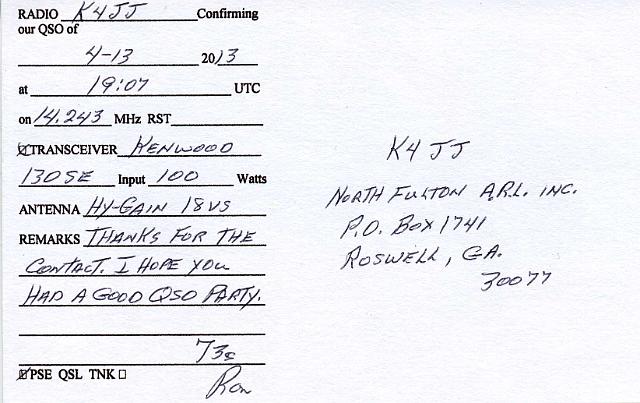 RADIO K4JJ Confirming
our QSO of
4-13 2013
at 19:07 UTC
on 14.243 MHz RST
TRANSCEIVER KENWOOD
130SE Input 100 Watts
ANTENNA HY-GAIN 18VS
REMARKS THANKS FOR THE
CONTACT. I HOPE YOU
HAD A GOOD QSO PARTY.
73s
PSE QSL TNK
Ron
K4JJ
NORTH FULTON A.R.L. INC.
P.O. BOX 1741
ROSWELL, GA.
30077